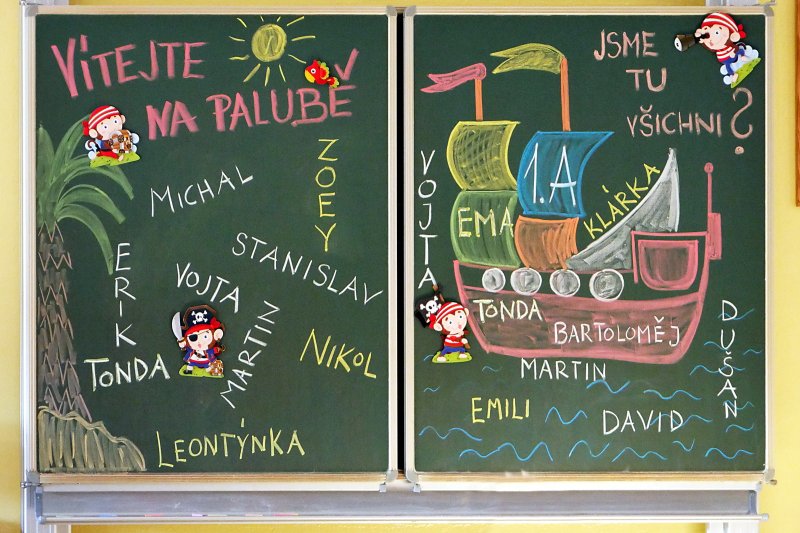 VÍTEJTE
NA PALUBĚ
MICHAL
ZOEY
STANISLAV
ERIK
VOJTA
MARTIN
TONDA
NIKOL
LEONTÝNKA
JSME
TU
VŠICHNI?
VOJTA
1.A
EMA
KLÁRKA
TONDA
BARTOLOMĚJ
MARTIN
DUŠAN
EMILI
DAVID